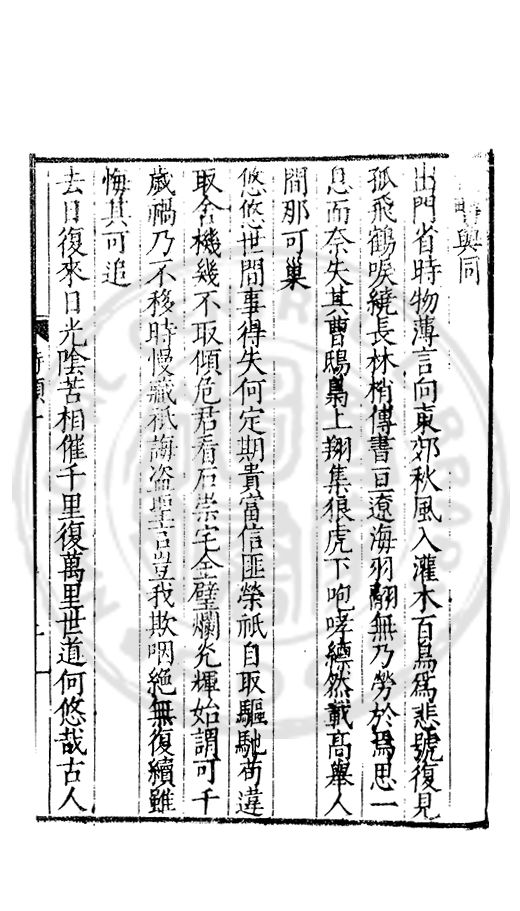 與同
出門省時物薄言向東郊秋風入灌木百鳥爲悲號復見
孤飛鶴唳繞長林梢傳書亘遼海羽翮無乃勞於焉思一
息而奈失其曹鴟梟上翔集狼虎下咆哮縹然載高舉人
間那可巢
悠悠世間事得失何定期貴富信匪榮祇自取驅馳苟違
取舍機幾不取傾危君看石崇宅金璧爛光輝始謂可千
歲禍乃不移時慢藏祇誨盜聖言豈我欺咽絕無復續雖
悔其可追
去日復來日光陰苦相催千里復萬里世道何悠哉古人